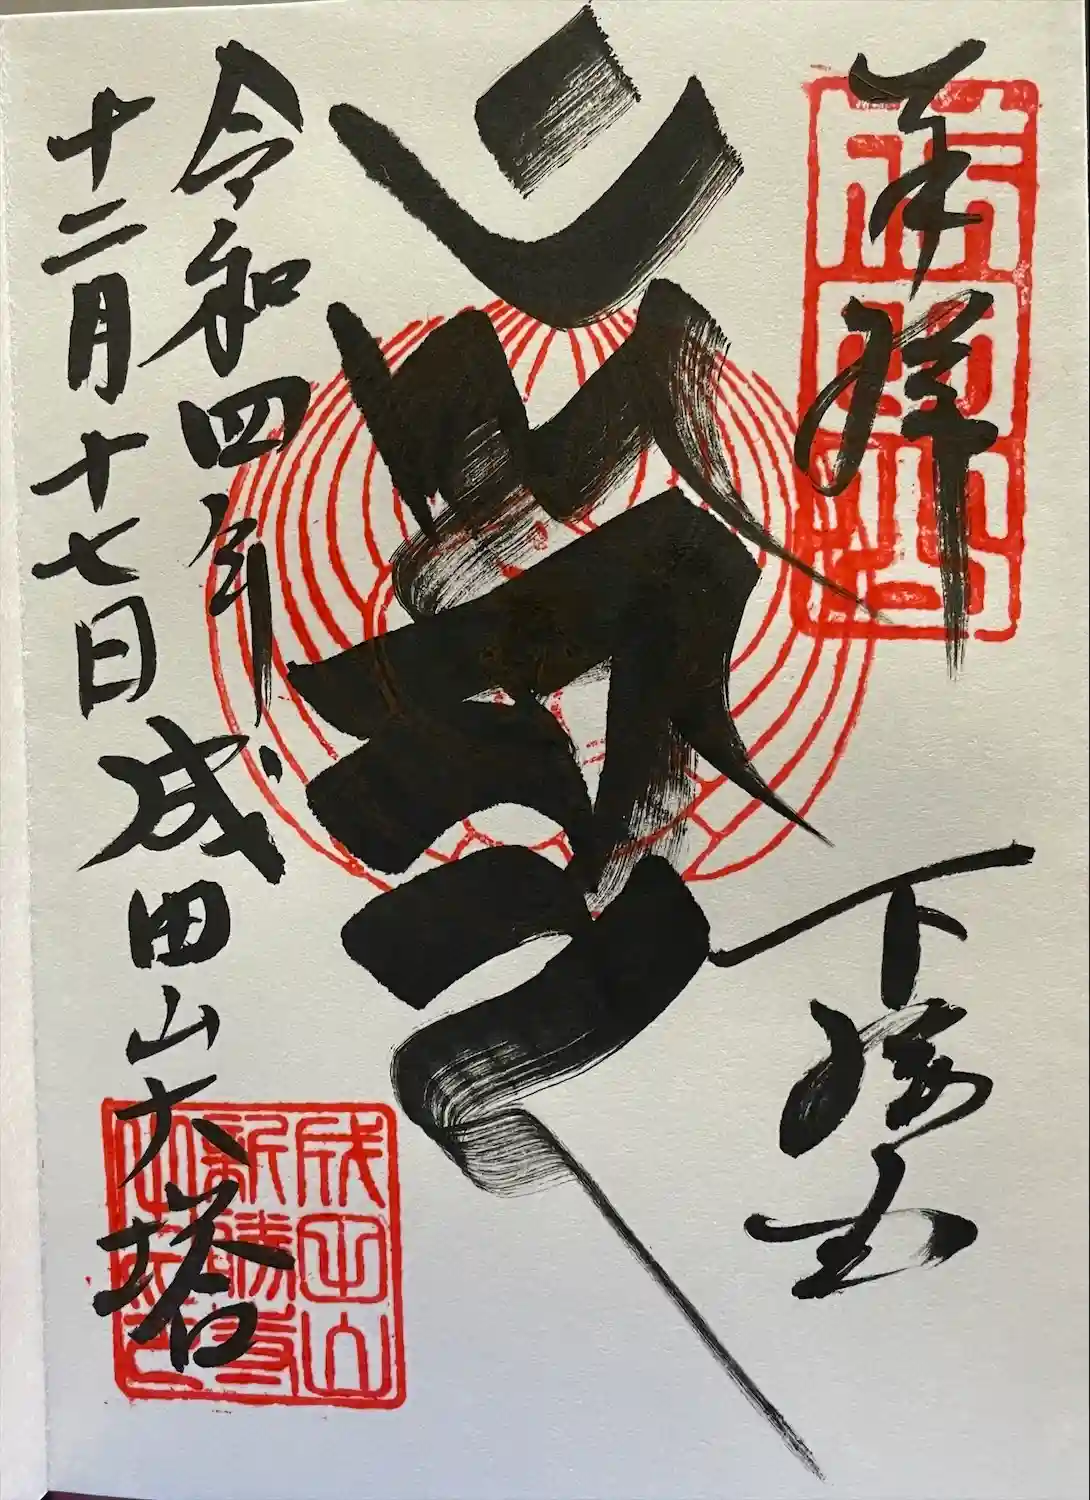 奉拝
下総国
令和四年
十二月十七日
成田山大塔
成田山
新勝寺